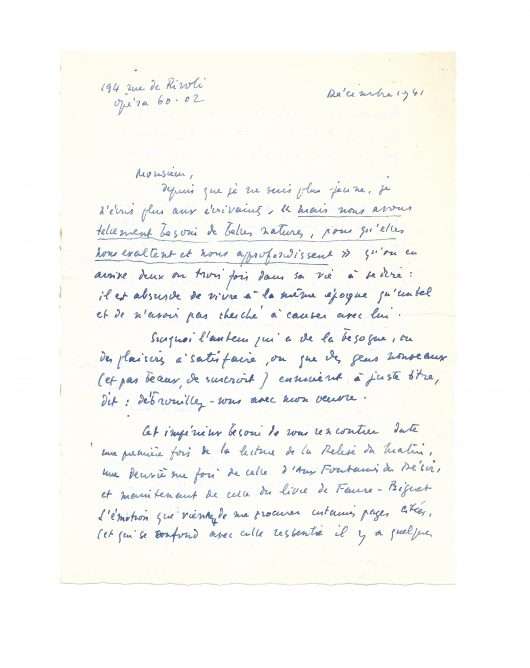 194 rue de Rivoli
Opéra 60-02
Décembre 1941
Monsieur,
Depuis que je ne suis plus jeune, je
n'écris plus aux écrivains, « mais nous avons
tellement besoin de belles natures, pour qu'elles
nous exaltent et nous approfondissent » qu'on en
arrive deux ou trois fois dans sa vie à se dire :
il est absurde de vivre à la même époque qu'un tel
et de n'avoir pas cherché à causer avec lui.
Surquoi l'auteur qui a de la besogne, ou
des plaisirs à satisfaire, ou que des gens nouveaux
(et pas beaux, de surcroît) ennuient à juste titre,
dit : débrouillez-vous avec mon œuvre.
Cet impérieux besoin de vous rencontrer date
une première fois de la lecture de la Relève du Matin,
une deuxième fois de celle d'Aux Fontaines du Désir,
et maintenant de celle du livre de Faure-Biguet
L'émotion que viennent de me procurer certaines pages citées,
(et qui se confond avec celle ressentie il y a quelques